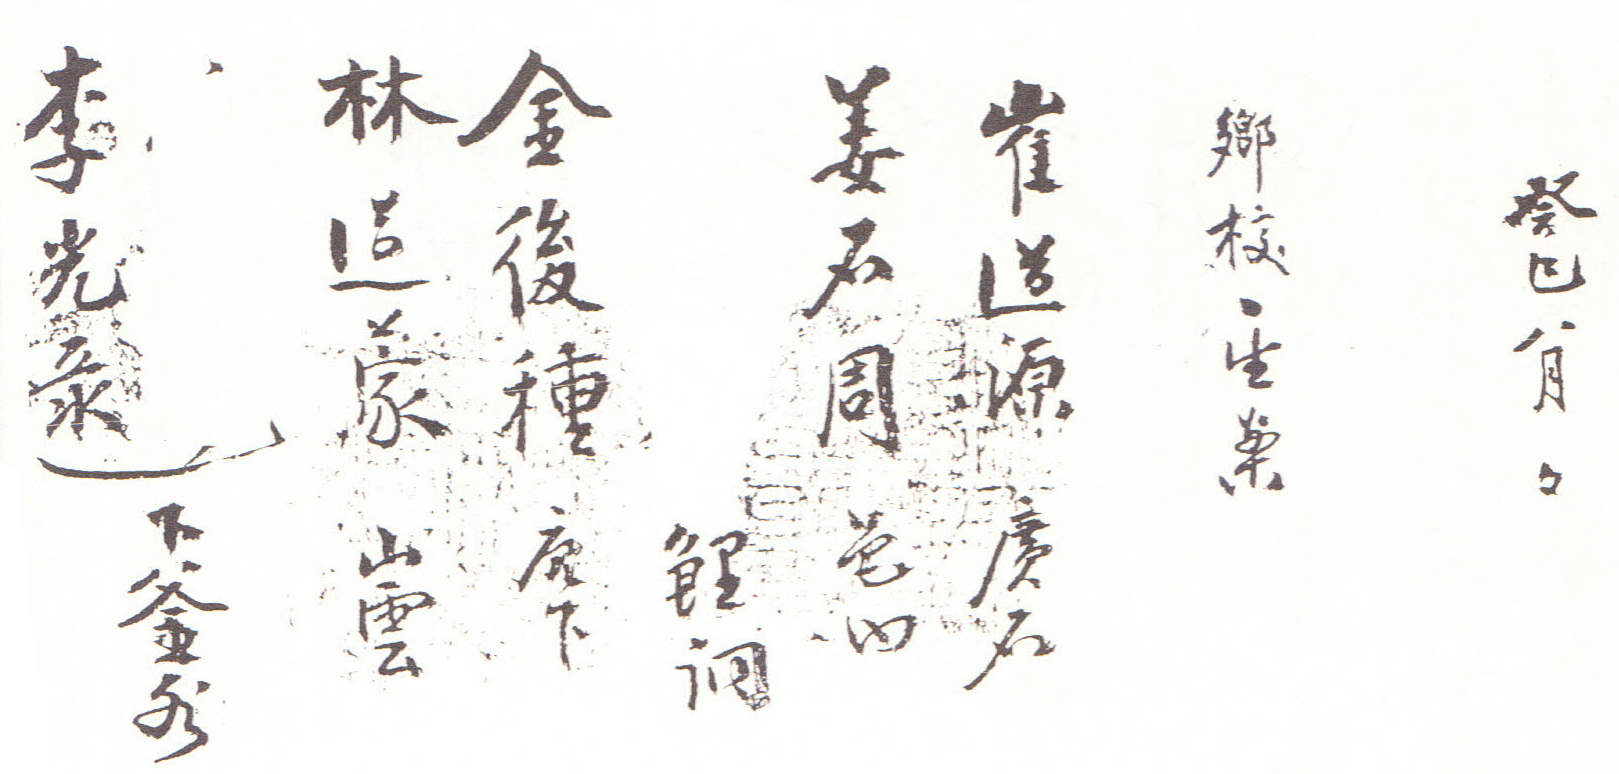 癸巳 月 日
鄕校 生案
崔道源 廣石
姜石周 邑内
金後種 底下
鯉洞
林道蒙 山雲
李光彔 下釜谷